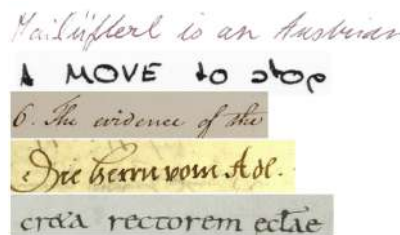 Mailüfterl is an Austrian
A MOVE to stop
6. The evidence of the
Die herrn vom Adl.
rectorem